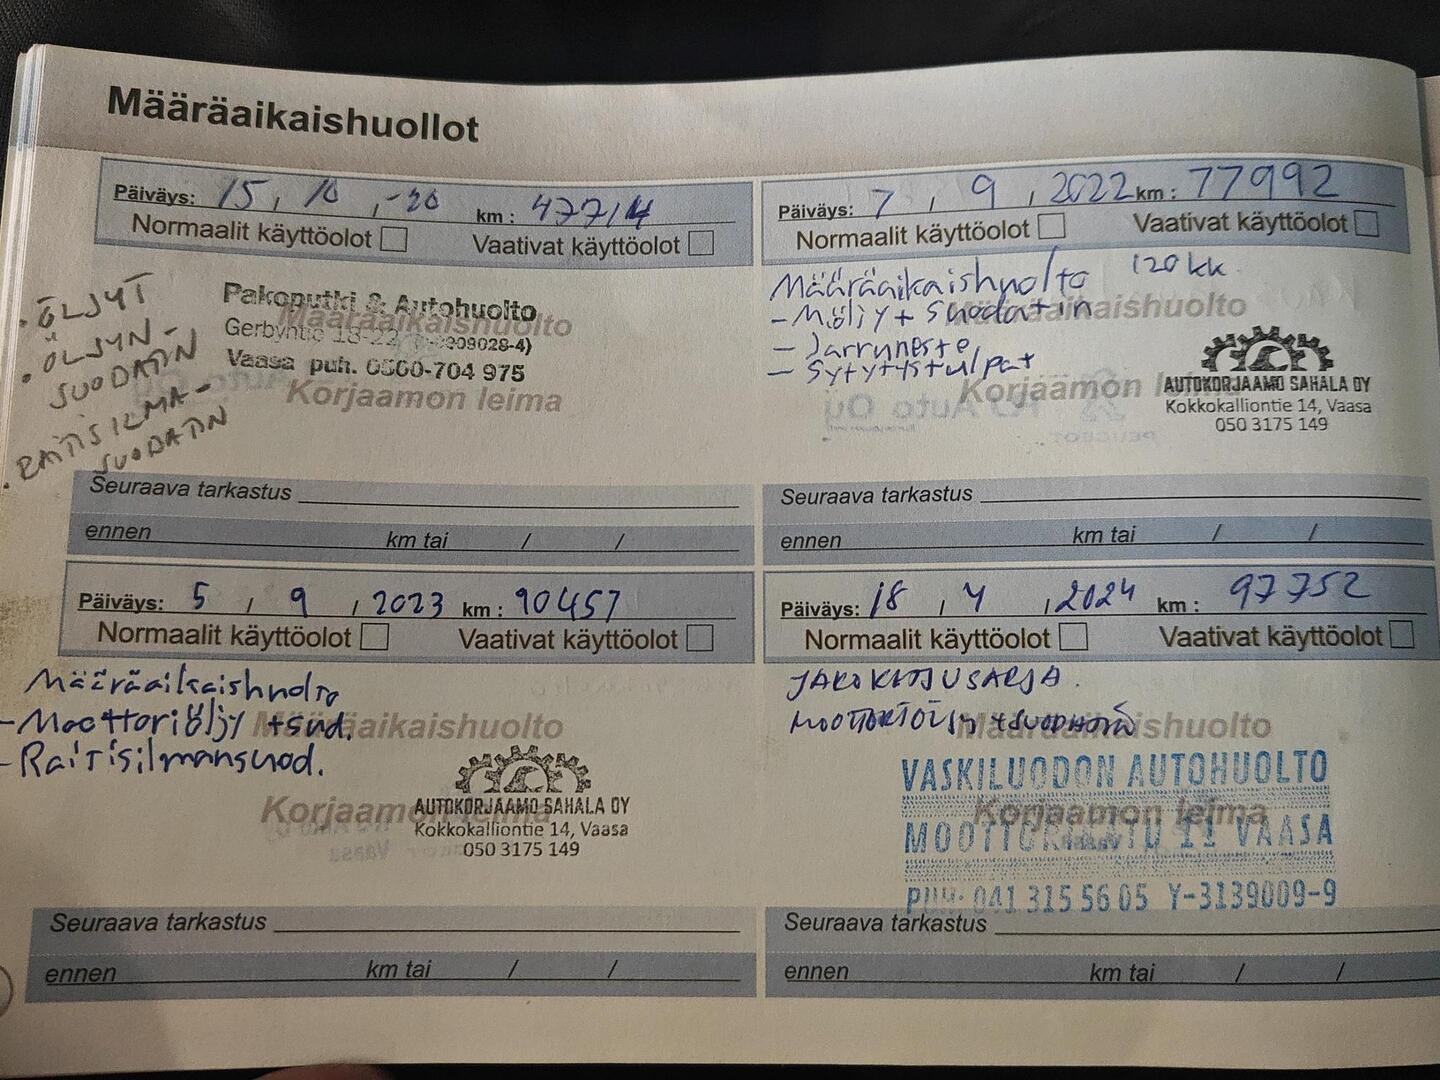 Määräaikaishuollot
Päiväys: 15, 10, -20 km: 47714
Normaalit käyttöolot Vaativat käyttöolot
• ÖLJYT
• ÖLJYN-
SUODATIN
• RAITISILMA-
SUODATIN
Pakoputki & Autohuolto
Määräaikaishuolto
Gerbyntie 18-22
Vaasa puh. 0500-704 975
Korjaamon leima
Seuraava tarkastus
ennen km tai / /
Päiväys: 7, 9, 2022 km: 77992
Normaalit käyttöolot Vaativat käyttöolot
Määräaikaishuolto 120 kk
Määräaikaishuolto
- Möljy + Suodatin
- Jarruneste
- Sytytystulpat
Korjaamon leima
AUTOKORJAAMO SAHALA OY
Kokkokalliontie 14, Vaasa
050 3175 149
Seuraava tarkastus
ennen km tai / /
Päiväys: 5, 9, 2023 km: 90457
Normaalit käyttöolot Vaativat käyttöolot
Määräaikaishuolto
- Moottoriöljy + sud.
Määräaikaishuolto
- Raitisilmansuod.
Korjaamon leima
AUTOKORJAAMO SAHALA OY
Kokkokalliontie 14, Vaasa
050 3175 149
Seuraava tarkastus
ennen km tai / /
Päiväys: 18, 4, 2024 km: 97752
Normaalit käyttöolot Vaativat käyttöolot
JAKOKETJUSARJA.
MOOTTORIÖLJY + SUODATIN
Määräaikaishuolto
VASKILUODON AUTOHUOLTO
Korjaamon leima
MOOTTORIKATU 11 VAASA
PUH. 041 315 56 05 Y-3139009-9
Seuraava tarkastus
ennen km tai / /